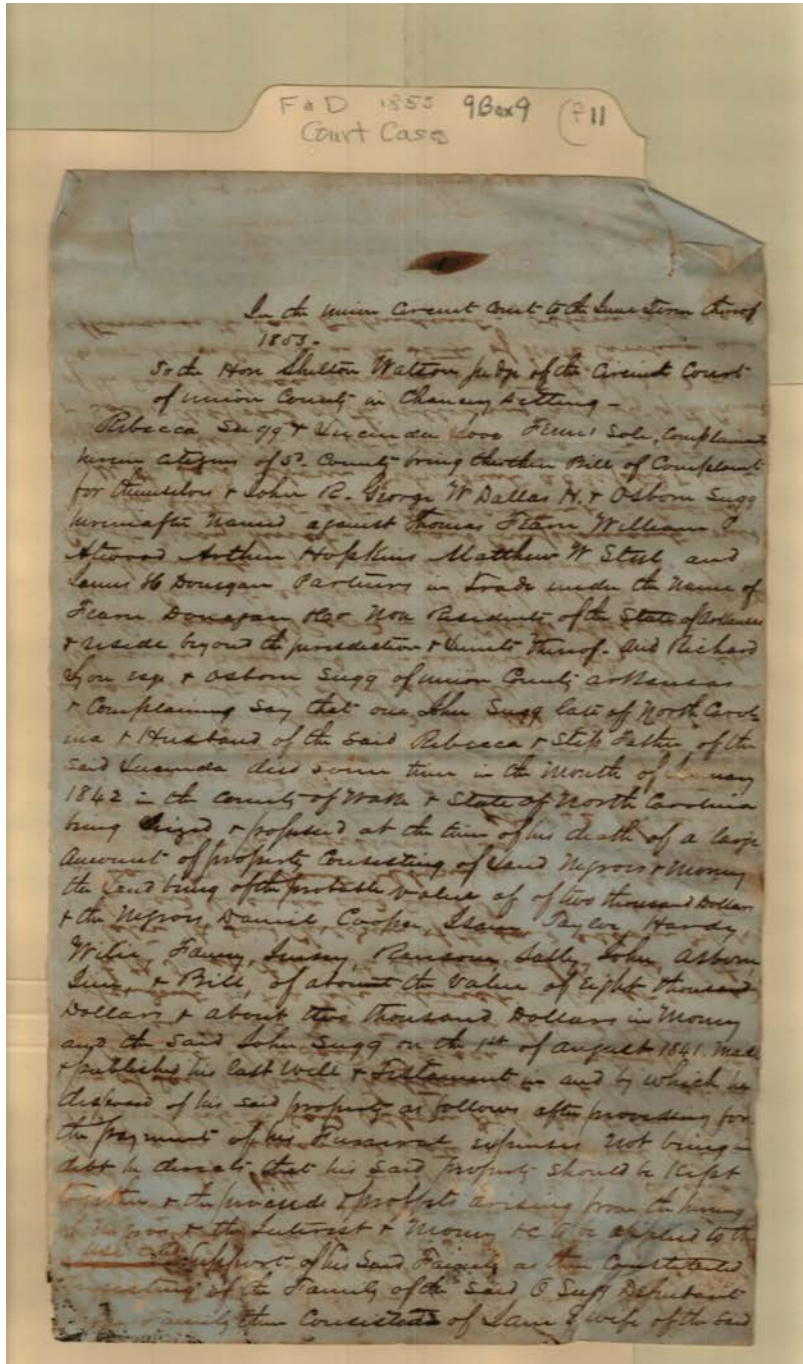 F & D 1853 9Box9 (F 11
Court Cases
In the Union Circuit Court to the June Term thereof
1853.
To the Hon Shelton Watson judge of the Circuit Court
of Union County in Chancery Sitting -
Rebecca Sugg & Lucinda Love Feme Sole, Complain
citizens of Sd. County bring this their Bill of Complaint
for themselves & John R. George W Dallas H. & Osborn Sugg
hereinafter Named against Thomas Fearn William P
Atwood Arthur Hopkins Matthew W Steel and
James H Donegan Partners in Trade under the Name of
Fearn Donegan &co Non Residents of the State of Arkansas
& reside beyond the jurisdiction & limits thereof. and Richard
Lyon esqr & Osborn Sugg of Union County Arkansas
& Complaining Say that one John Sugg late of North Caroli
na & Husband of the Said Rebecca & Step Father of the
Said Lucinda died some time in the Month of January
1842 in the County of Wake & State of North Carolina
being Seized & possessed at the time of his death of a large
Amount of property Consisting of Land Negroes & Money
the Land being of the probable value of of two thousand Dollars
& the Negroes, Daniel, Cooper, Isam, Taylor, Hardy,
Wilie, Fanny, Jinny, Ransom, Sally, John, Osborn,
& Bill, of about the Value of Eight thousand
Dollars & about two thousand Dollars in Money
and the Said John Sugg on the 1st of August 1841. Made
& published his last Will & Testament in and by which he
disposed of his said property as follows after providing for
the payment of his Funeral expenses Not being in
debt he directs that his Said property should be Kept
together & the proceeds & proffits arising from the hiring
of Negroes & the Interest & Money &c to be applied to the
use & Support of his Said Family as then Constituted
of the Family of the Said O Sugg Defendant
Family then Consisted of Jane E wife of the Said